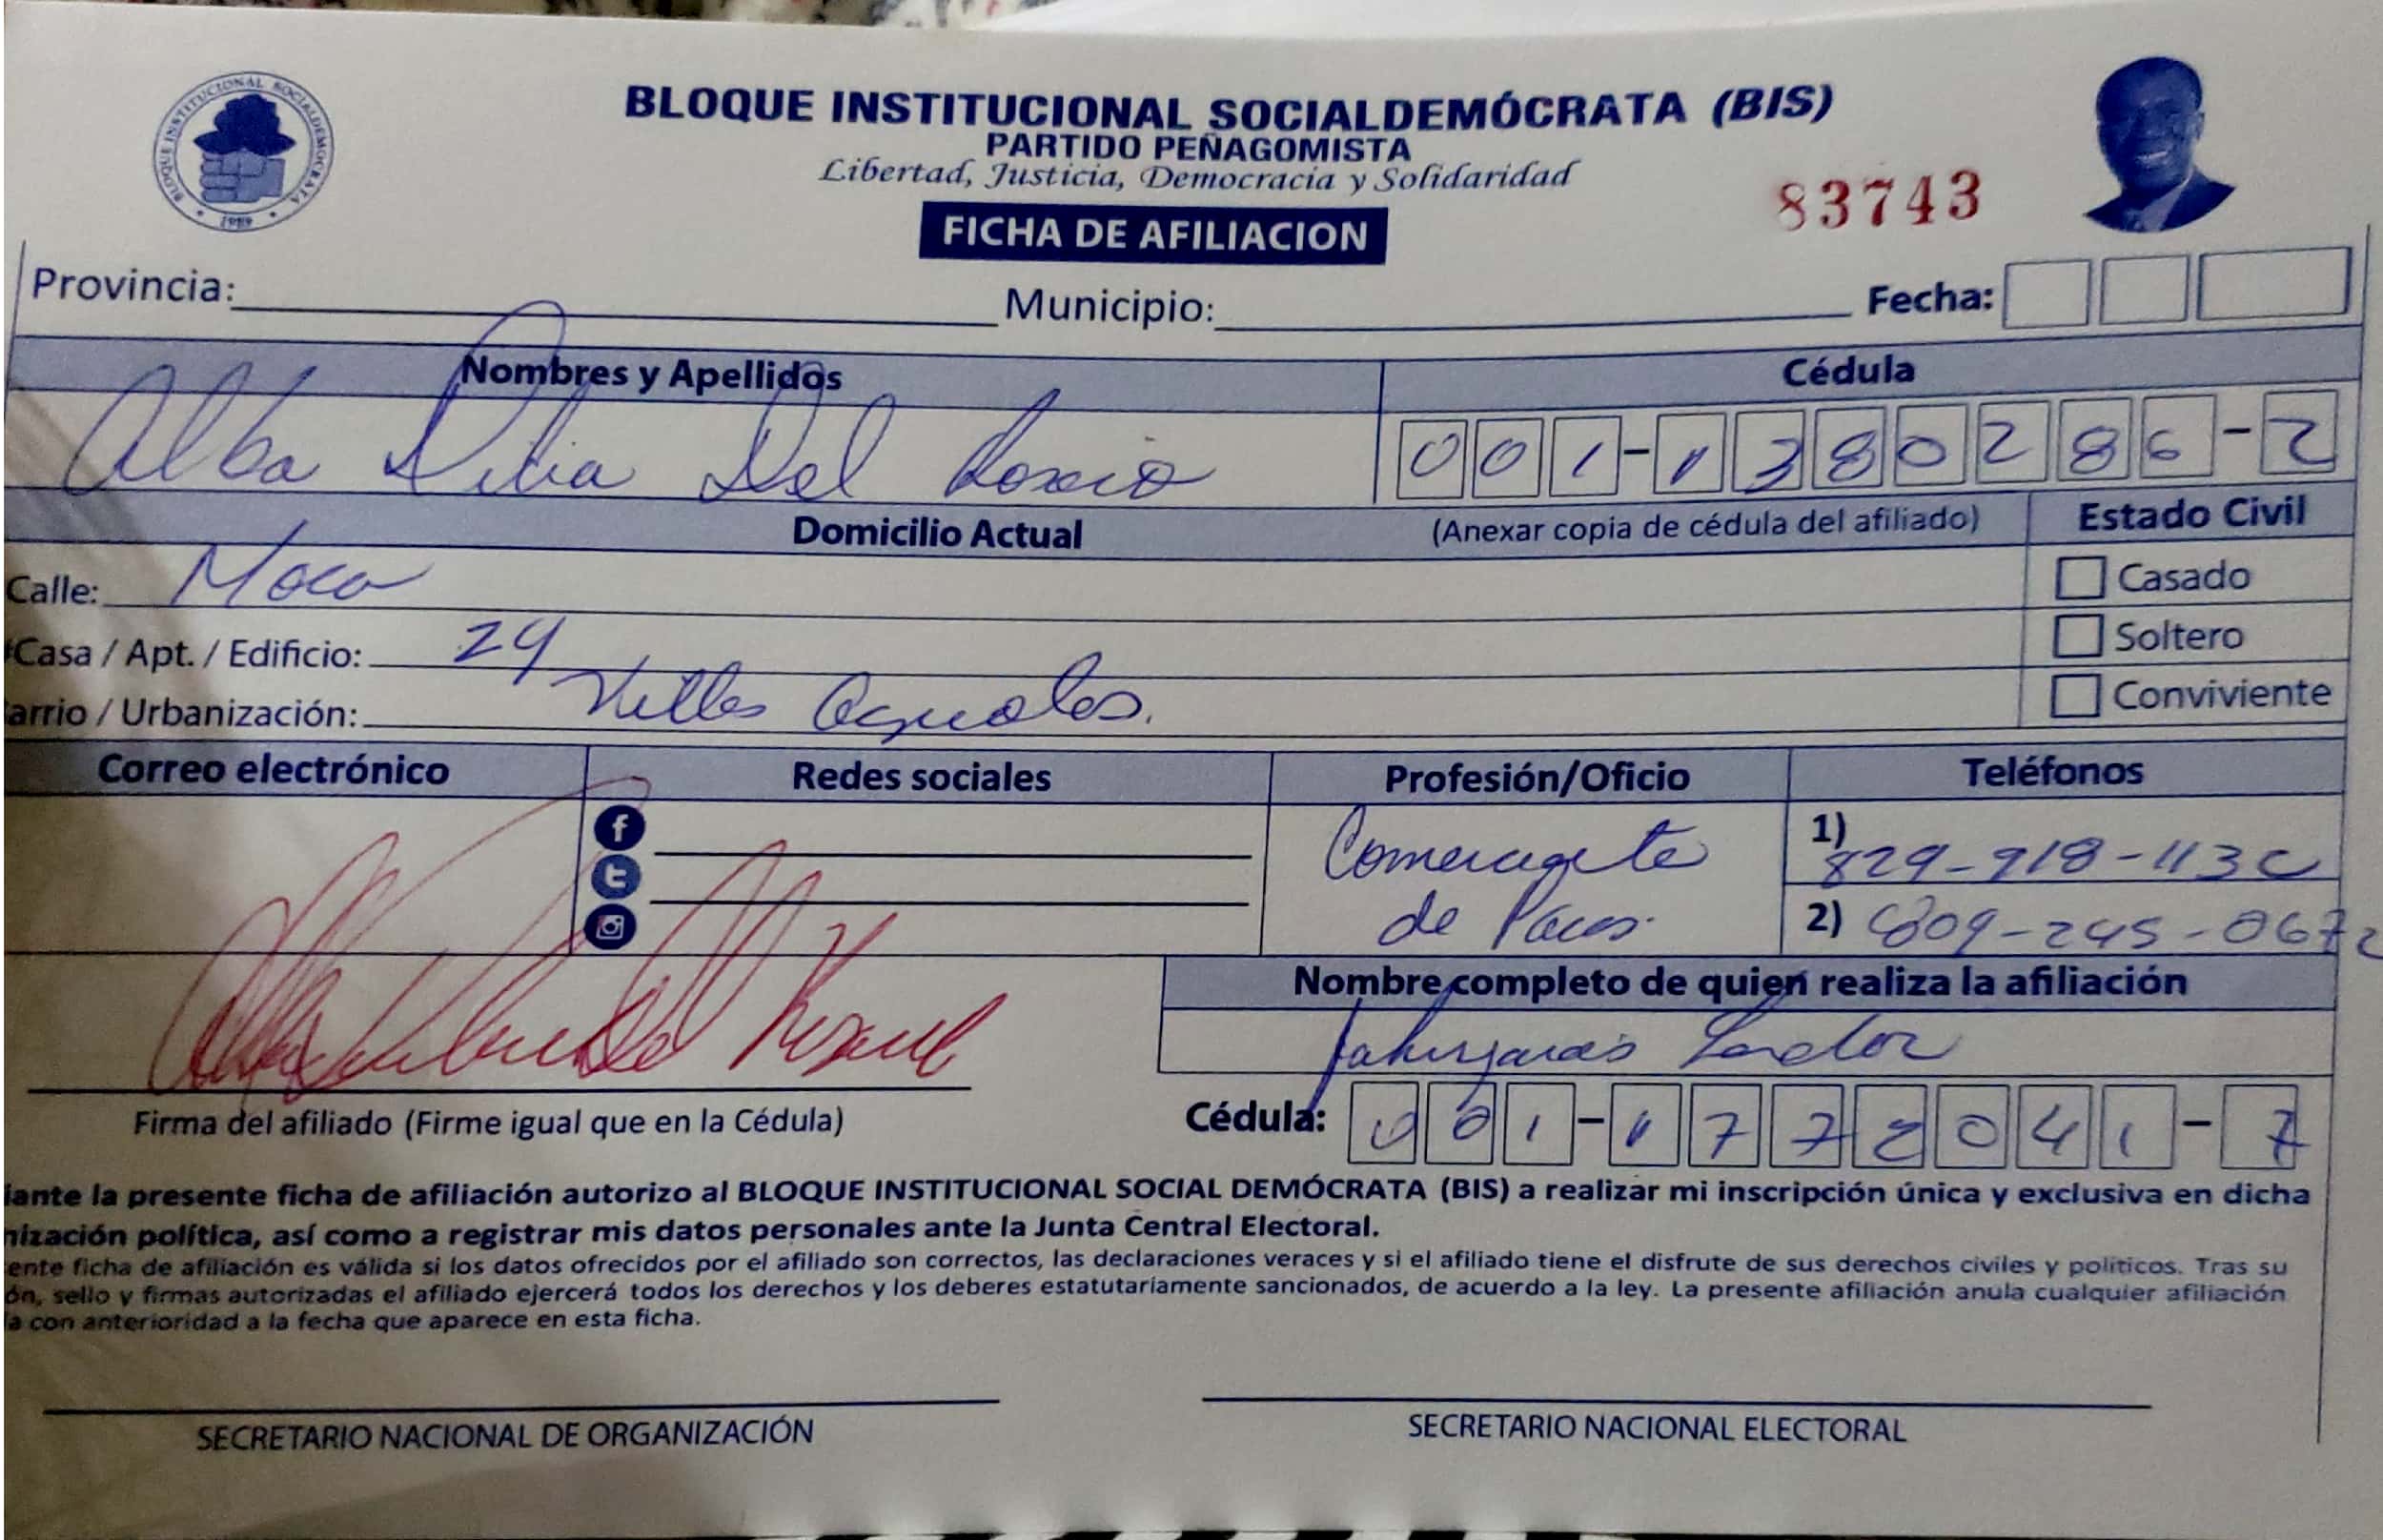 BLOQUE INSTITUCIONAL SOCIALDEMÓCRATA (BIS)
PARTIDO PEÑAGOMISTA
Libertad, Justicia, Democracia y Solidaridad
BLOQUE INSTITUCIONAL SOCIALDEMOCRATA
1989
83743
FICHA DE AFILIACION
Provincia: Municipio: Fecha:
Nombres y Apellidos Cédula
Alba Del Rosario 001-1380286-2
Domicilio Actual (Anexar copia de cédula del afiliado) Estado Civil
Calle: Moca Casado
#Casa / Apt. / Edificio: 24 Soltero
arrio / Urbanización: Conviviente
Correo electrónico Redes sociales Profesión/Oficio Teléfonos
1) 829-918-113
de 2) 809-245-0672
Nombre completo de quien realiza la afiliación
Firma del afiliado (Firme igual que en la Cédula) Cédula: 001-1772041-7
iante la presente ficha de afiliación autorizo al BLOQUE INSTITUCIONAL SOCIAL DEMÓCRATA (BIS) a realizar mi inscripción única y exclusiva en dicha
nización política, así como a registrar mis datos personales ante la Junta Central Electoral.
ente ficha de afiliación es válida si los datos ofrecidos por el afiliado son correctos, las declaraciones veraces y si el afiliado tiene el disfrute de sus derechos civiles y políticos. Tras su
ón, sello y firmas autorizadas el afiliado ejercerá todos los derechos y los deberes estatutariamente sancionados, de acuerdo a la ley. La presente afiliación anula cualquier afiliación
a con anterioridad a la fecha que aparece en esta ficha.
SECRETARIO NACIONAL DE ORGANIZACIÓN SECRETARIO NACIONAL ELECTORAL